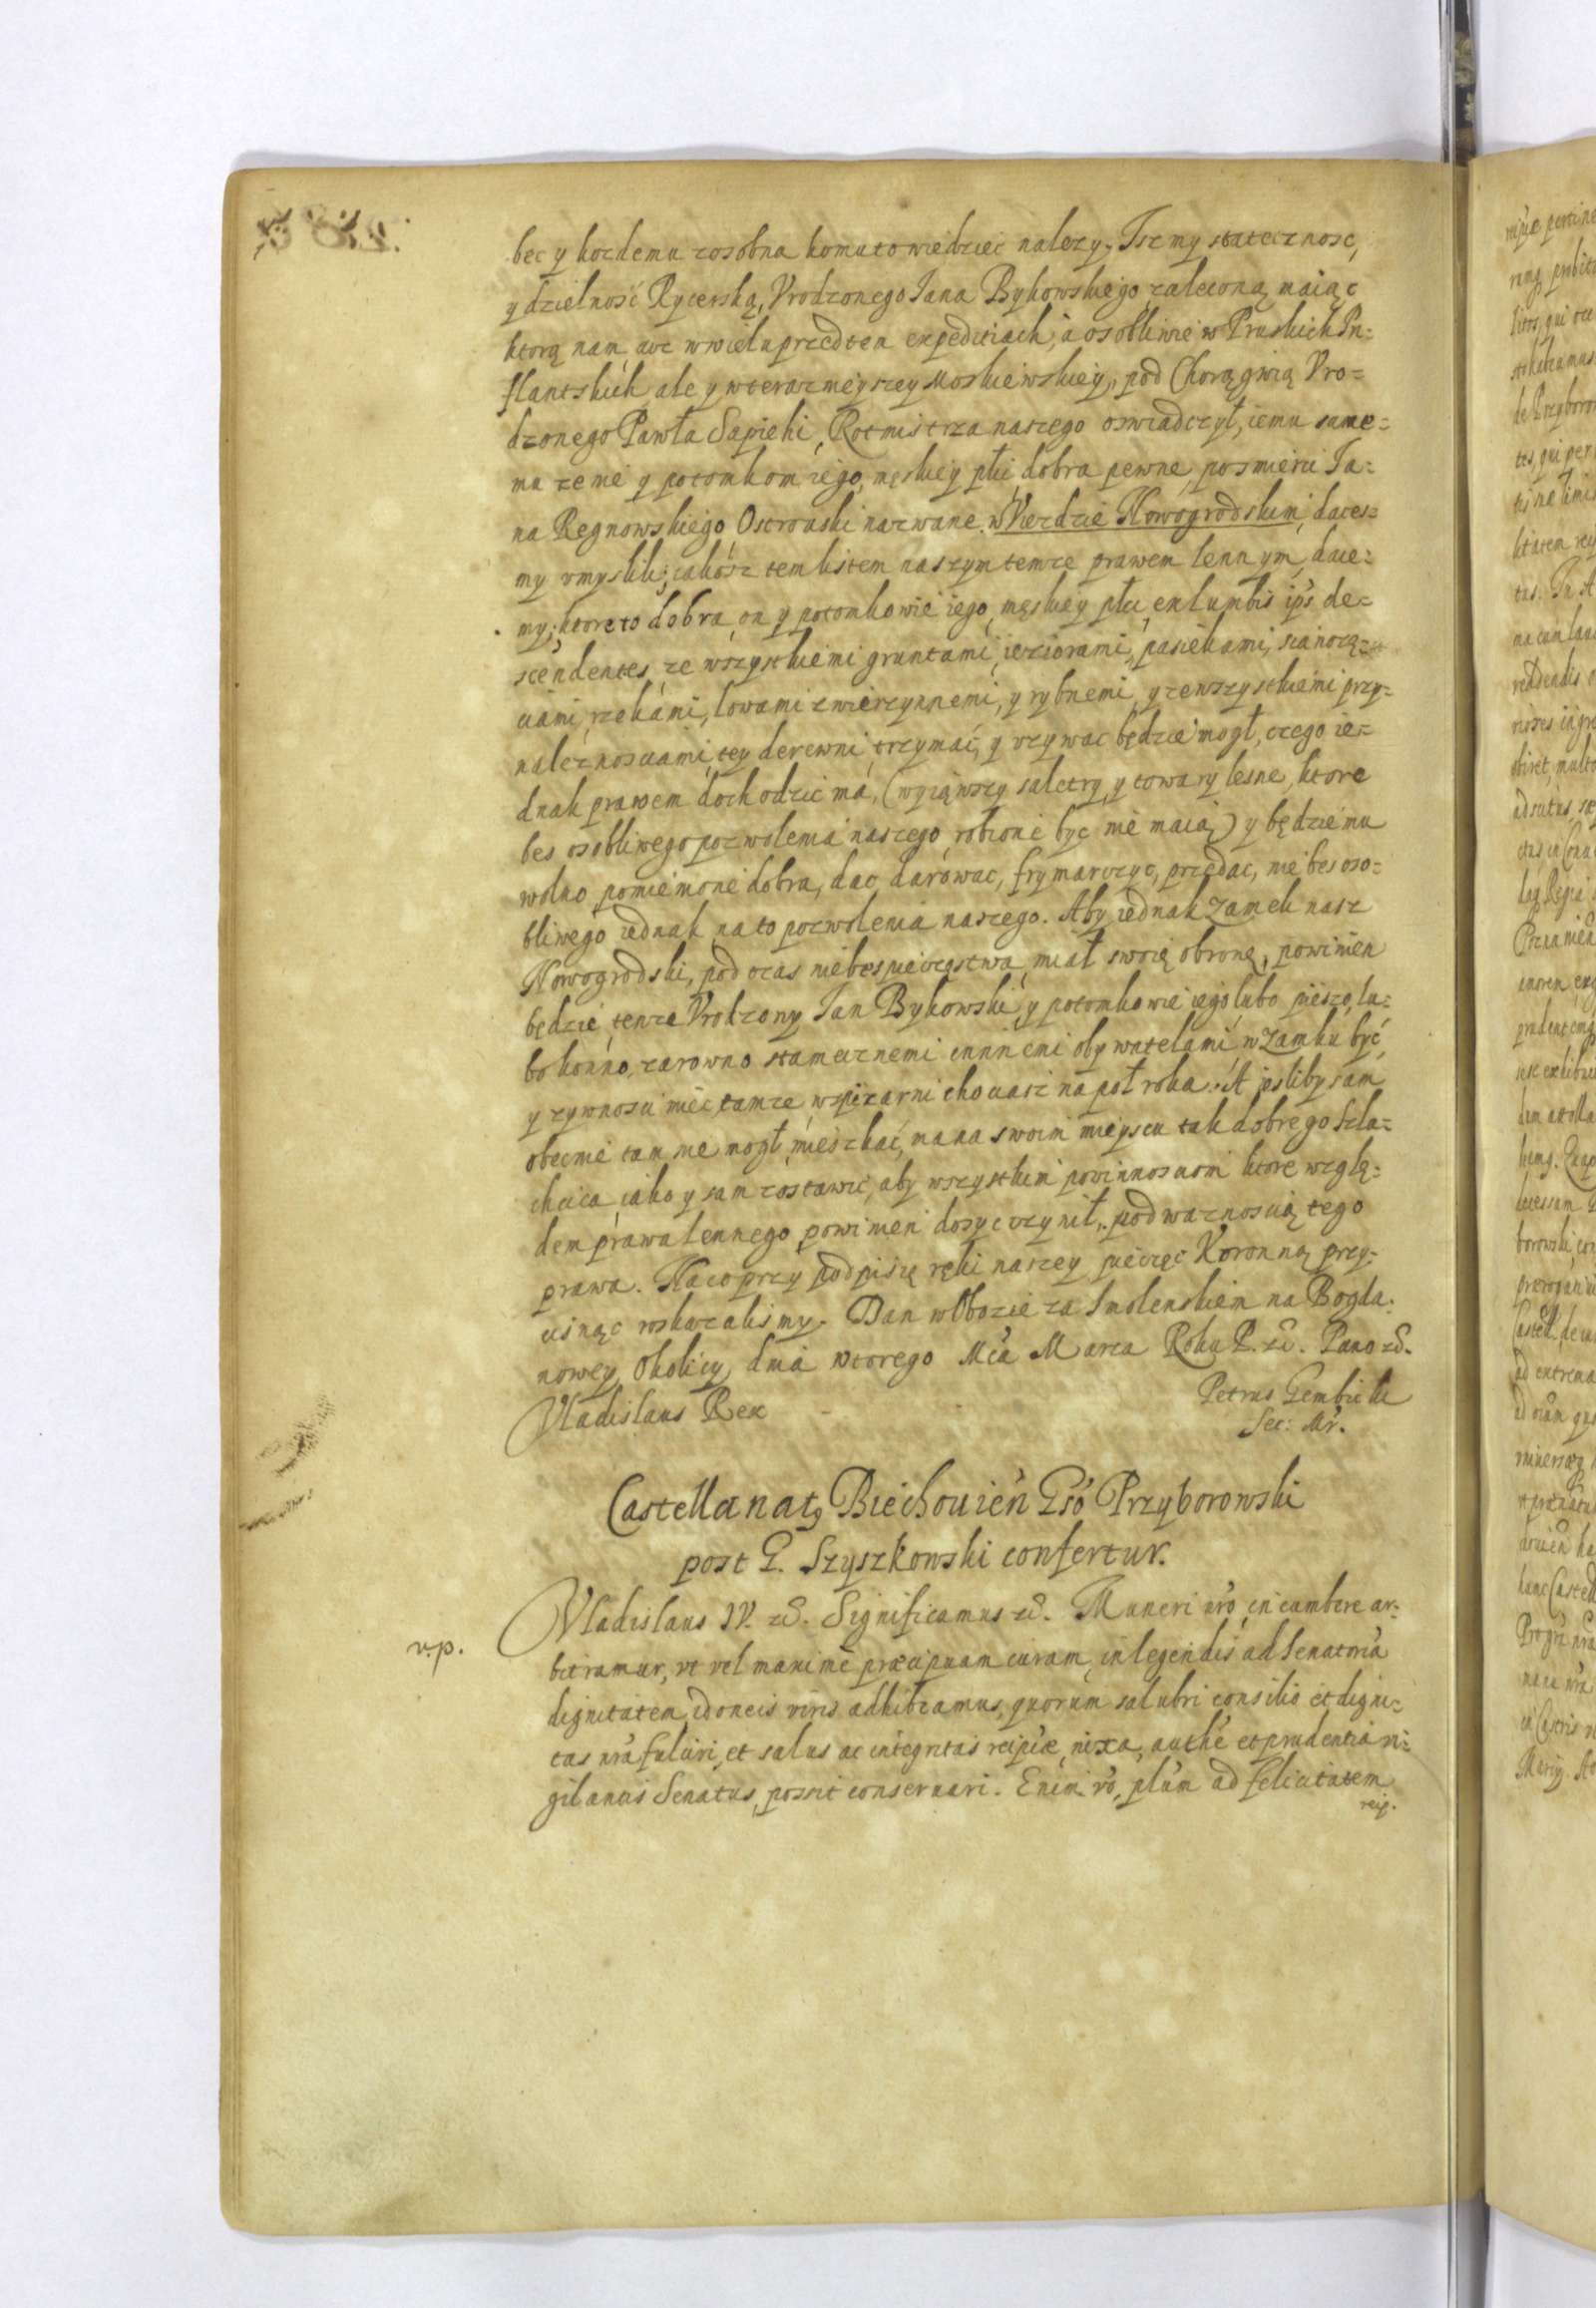 bec y kozdemu zosobna komu to wiedziec nalezy. Isz my stateczność,
y dzielność Rycerską, Vrodzonego Iana Bykowskiego zaleconą maiąc
ktorą nam we wielu przed tem expeditiach, a osobliwie w Pruskich In=
flantskich ale y w terazmieyszey Moskiewskiey, pod Chorągwią Vro=
dzonego Pawła Sapiehi, Rotmistrza naszego oswiadczył, iemu same=
mu zenie y potomkom iego, męskiey płci, dobra pewne, po smierci Ia=
na Regnowskiego, Ostrouski nazwane w Viezdzie Nowogrodskim, dac es=
my vmyslili, iakosz tem listem naszym temze prawem lennym, daie=
my; ktore to dobra, on y potomkowie iego, męskiey płci, ex lumbis ips: de=
scendentes, ze wszystkiemi gruntami, ieziorami, pasiekami, sianożę=
ciami, rzekami, lowami zwierzynnemi, y rybnemi, y ze wszystkiemi przy=
należnosciami, tey derewni, trzymać, y vzywac będzie mogł, czego ie=
dnak prawem dochodzic ma, (wyiąwszy saletry, y towary lesne, ktore
bes osobliwego pozwolenia naszego, robione byc nie maią) y będzie mu
wolno pomienione dobra, dac, darowac, frymarczyc, przedac, nie bes oso=
bliwego iednak na to pozwolenia naszego. Aby iednak Zamek nasz
Nowogrodski, pod czas niebespieczęstwa, miał swoię obronę, powinien
będzie, tenze Vrodzony Ian Bykowski, y potomkowie iego, lubo pieszo, lu=
bo konno, zarowno stamecznemi innnemi obywatelami, w Zamku być,
y zywnosci mieć, tamze w spizarni chouasz na poł roka. A iesliby sam
obecnie tam nie mogł mieszkać, ma na swoim mieyscu tak dobrego szla=
chcica, iako y sam zostawic, aby wszystkim powinnosciom ktore wzglę=
dem prawa lennego, powinien dosyc vzynił, pod waznoscią tego
prawa. Na co przy podpisię ręki naszey pieczęc Koronną przy=
cisnąc roskazalismy. Dan w Obozie za Smolenskiem na Bogda=
nowey Okolicy, dnia wtorego Mca Marca Roku P. etc. Pano etc.
Vladislaus Rex
Petrus Gembicki
Sec: Mr.
Castellanatus Biechouien Gso Przyborowski
post G. Szyszkowski confertur.
v.p.
Vladislaus IV. etc. Significamus etc. Muneri nro, incumbere ar=
bitramur, vt vel maxime præcipuam curam, in legendis ad Senatoria
dignitatem, idoneis viris adhibeamus, quorum salubri consilio et digni=
tas nra fulciri, et salus ac integritas reipcæ, nixa, authe et prudentia vi=
gilantis Senatus, possit conseruari. Enim vo, plum ad felicitatem
reip.